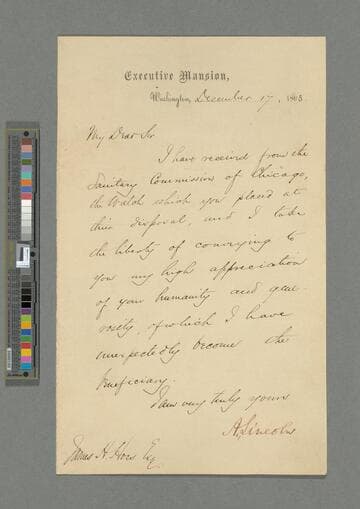 Executive Mansion,
Washington, December 17, 1863
My Dear Sir
I have received from the
Sanitary Commission of Chicago,
the Watch which you placed at
their disposal, and I take
the liberty of conveying to
you my high appreciation
of your humanity and gene-
rosity, of which I have
unexpectedly become the
beneficiary.
I am very truly yours
A. Lincoln
James H. Hoes Esq